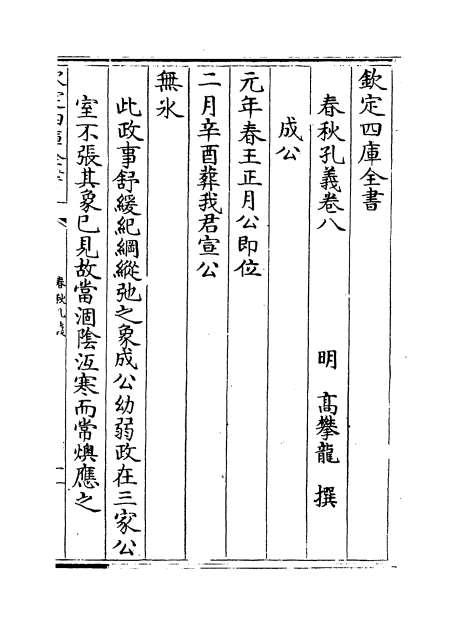 欽定四庫全書
春秋孔義卷八
明 高攀龍 撰
成公
元年春王正月公即位
二月辛酉葬我君宣公
無氷
此政事舒緩紀綱縱弛之象成公幼弱政在三家公
室不張其象已見故當涸陰沍寒而常燠應之
欽定四庫全書
春秋孔義
一